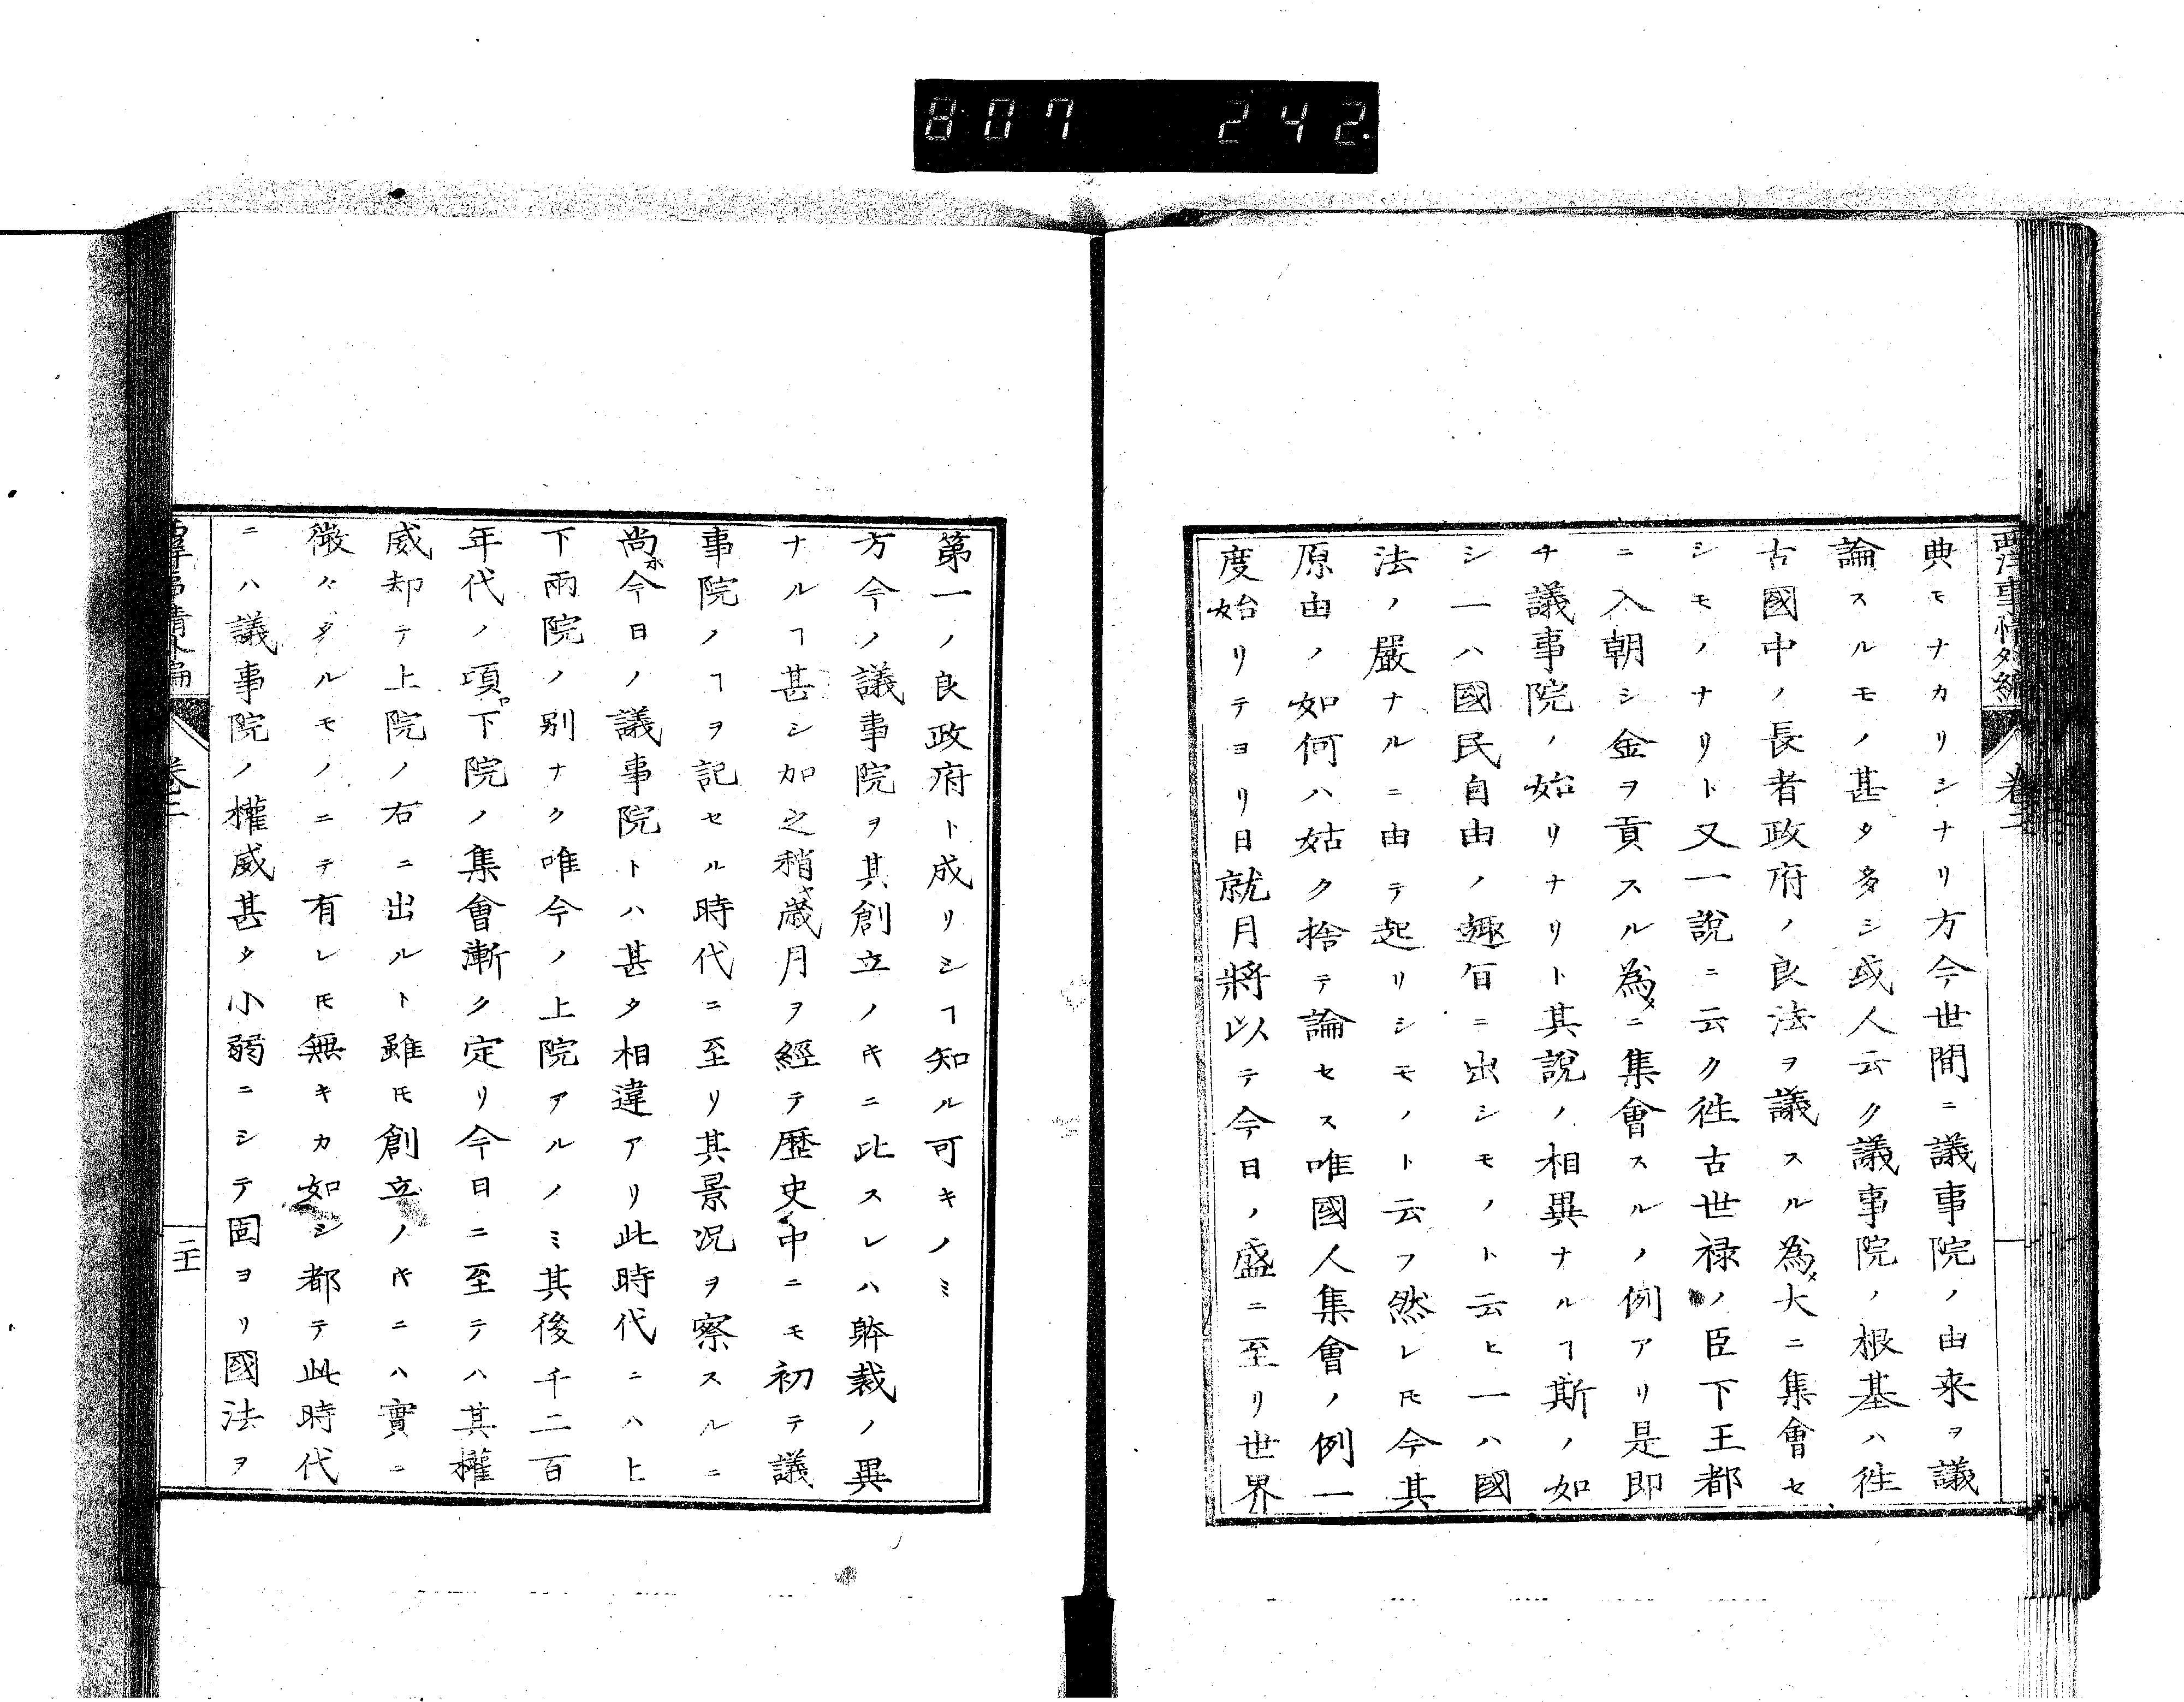 807 242.
西洋事情外編 卷二
典モナカリシナリ方今世間ニ議事院ノ由来ヲ議
論スルモノ甚タ多シ或人云ク議事院ノ根基ハ徃
古國中ノ長者政府ノ良法ヲ議スル為メ大ニ集會セ
シモノナリト又一說ニ云ク徃古世禄ノ臣下王都
ニ入朝シ金ヲ貢スル為メニ集會スルノ例アリ是即
チ議事院ノ始リナリト其說ノ相異ナルヿ斯ノ如
シ一ハ國民自由ノ趣旨ニ出シモノト云ヒ一ハ國
法ノ嚴ナルニ由テ起リシモノト云フ然レ𪜈今其
原由ノ如何ハ姑ク捨テ論セス唯國人集會ノ例一
度始リテヨリ日就月將以テ今日ノ盛ニ至リ世界
第一ノ良政府ト成リシヿ知ル可キノミ
方今ノ議事院ヲ其創立ノ𪜀ニ比スレハ躰裁ノ異
ナルヿ甚シ加之稍ヤ歳月ヲ經テ歷史中ニモ初テ議
事院ノヿヲ記セル時代ニ至リ其景況ヲ察スルニ
尚ホ今日ノ議事院トハ甚タ相違アリ此時代ニハ上
下兩院ノ別ナク唯今ノ上院アルノミ其後千二百
年代ノ頃ロ下院ノ集會漸ク定リ今日ニ至テハ其權
威却テ上院ノ右ニ出ルト雖𪜈創立ノ𪜀ニハ實ニ
微々タルモノニテ有レ𪜈無キカ如シ都テ此時代
ニハ議事院ノ權威甚タ小弱ニシテ固ヨリ國法ヲ
西洋事情外編 卷二 二十